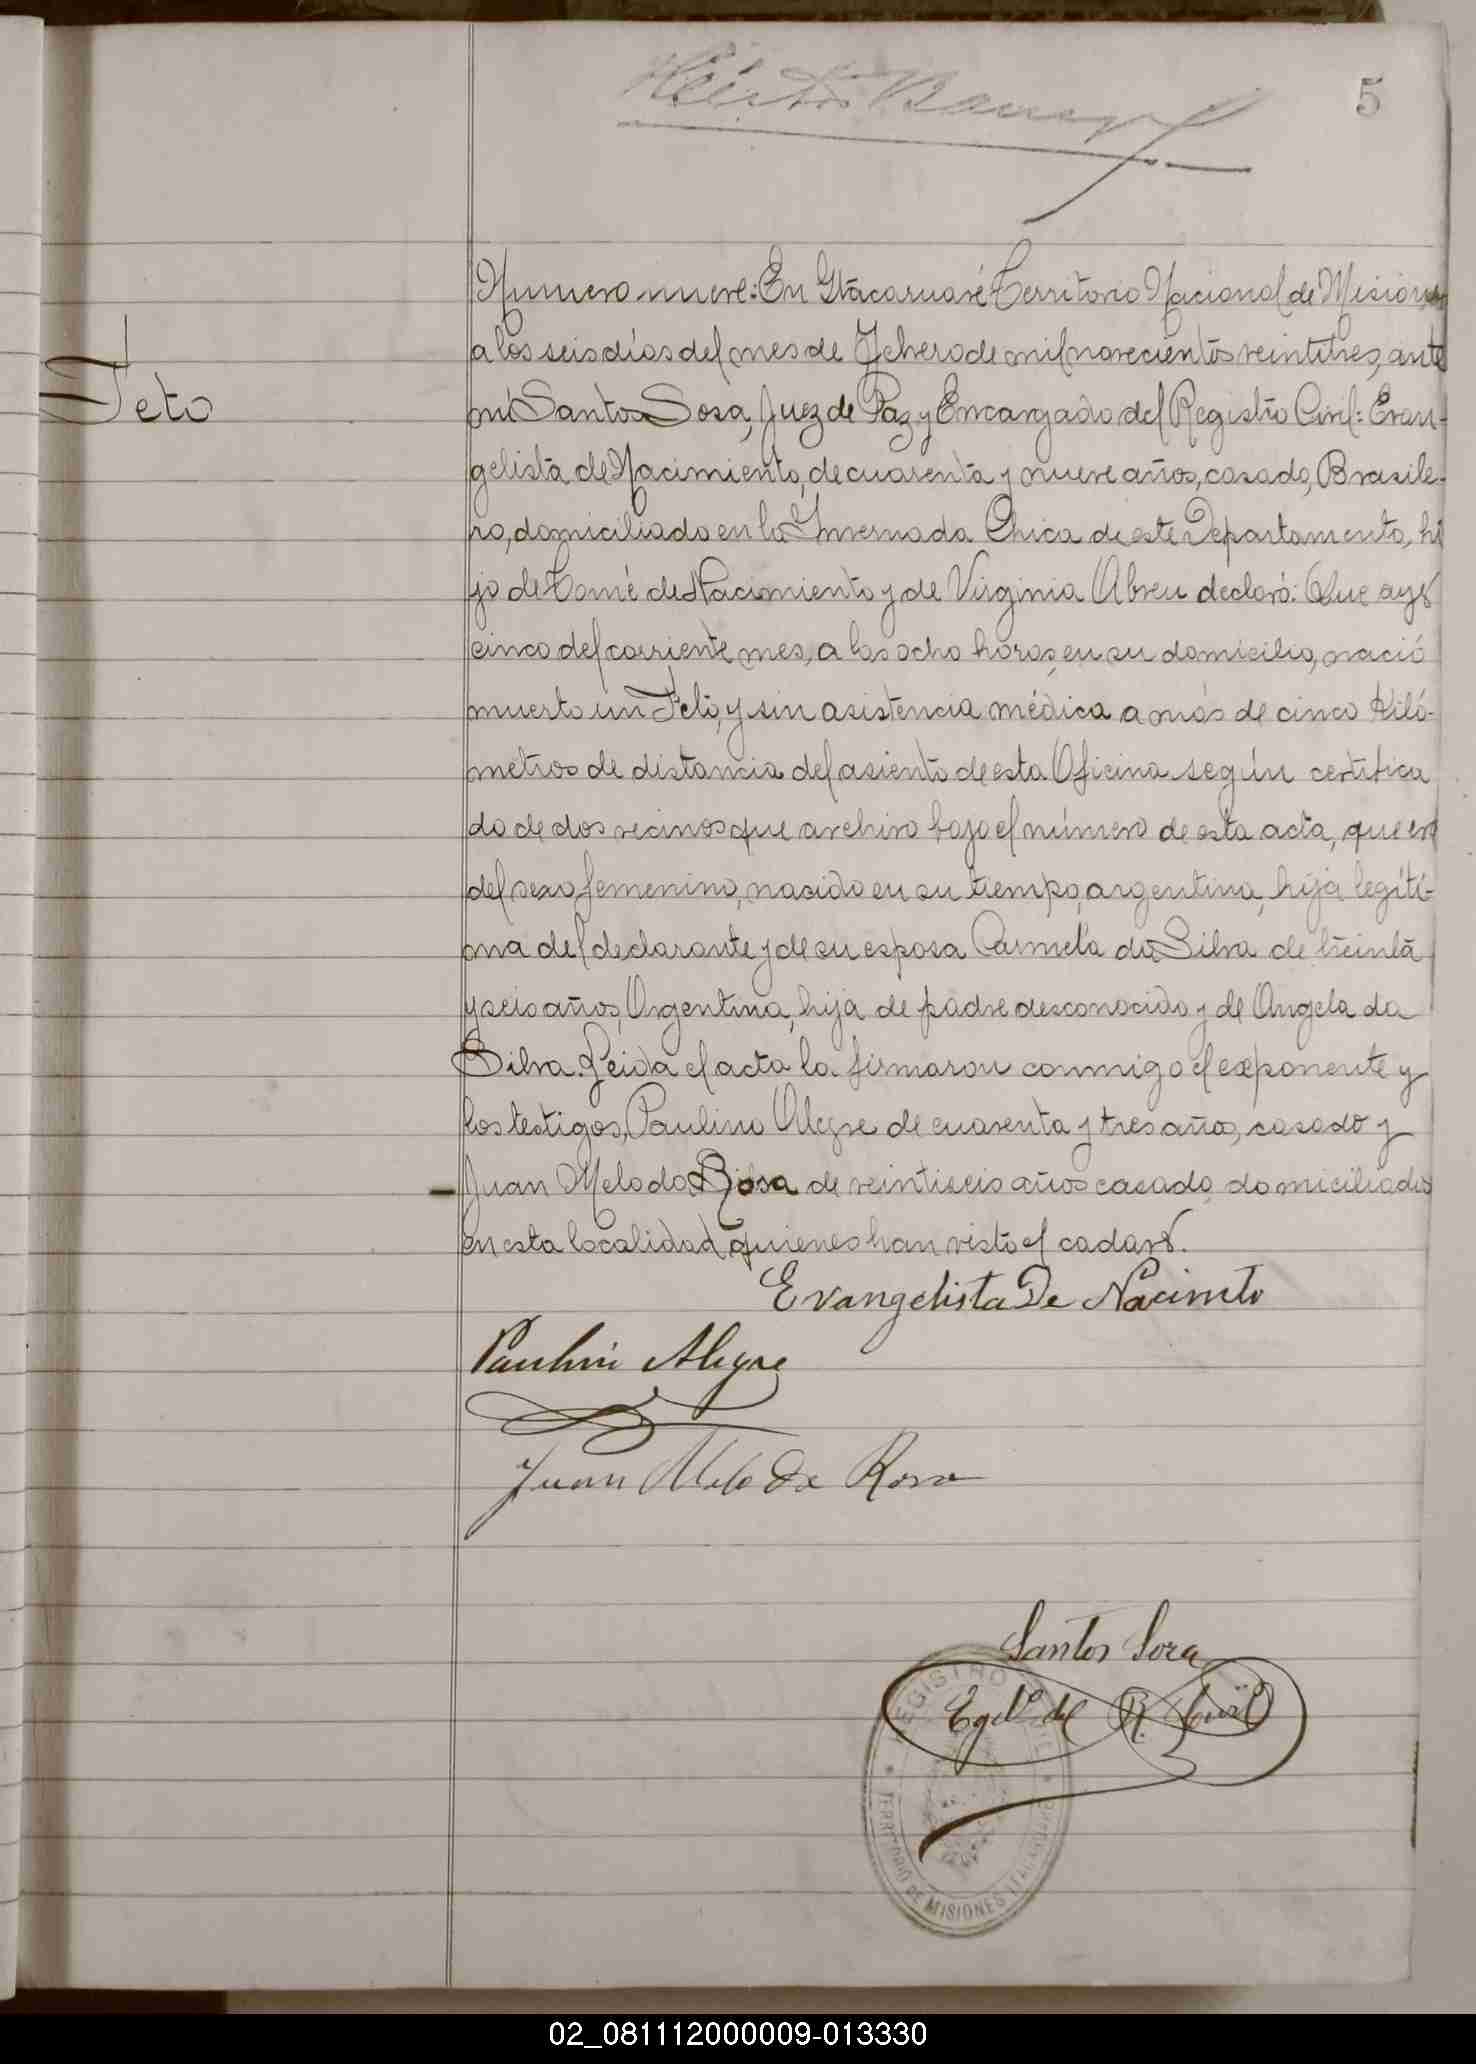 5
Numero nueve: En Ytacaruaré Territorio Nacional de Misiones
a los seis días del mes de Febrero de mil novecientos veintitres, ante
Feto
mí Santos Sosa, Juez de Paz y Encargado del Registro Civil: Evan-
gelista de Nacimiento, de cuarenta y nueve años, casado, Brasile-
ro, domiciliado en la Invernada Chica de este Departamento, hi
jo de Tomé de Nacimiento y de Virginia Abreu declaró: Que ayer
cinco del corriente mes, a las ocho horas, en su domicilio, nació
muerto un Feto, y sin asistencia médica a más de cinco Kiló-
metros de distancia del asiento de esta Oficina según certifica
do de dos vecinos que archivo bajo el número de esta acta, que era
del sexo femenino, nacido en su tiempo, argentina, hija legíti-
ma del declarante y de su esposa Carmela da Silva de treinta
y seis años, Argentina, hija de padre desconocido y de Angela da
Silva. Leida el acta la firmaron conmigo el exponente y
los testigos, Paulino Alegre de cuarenta y tres años, casado y
Juan Melo da Rosa de veintiseis años casado, domiciliados
en esta localidad, quienes han visto el cadaver.
Evangelista De Nacimto
Paulino Alegre
Juan Melo Da Rosa
Santos Sosa
Egdo. del R. Civil
REGISTRO CIVIL
TERRITORIO DE MISIONES ITACARUARÉ
02_081112000009-013330